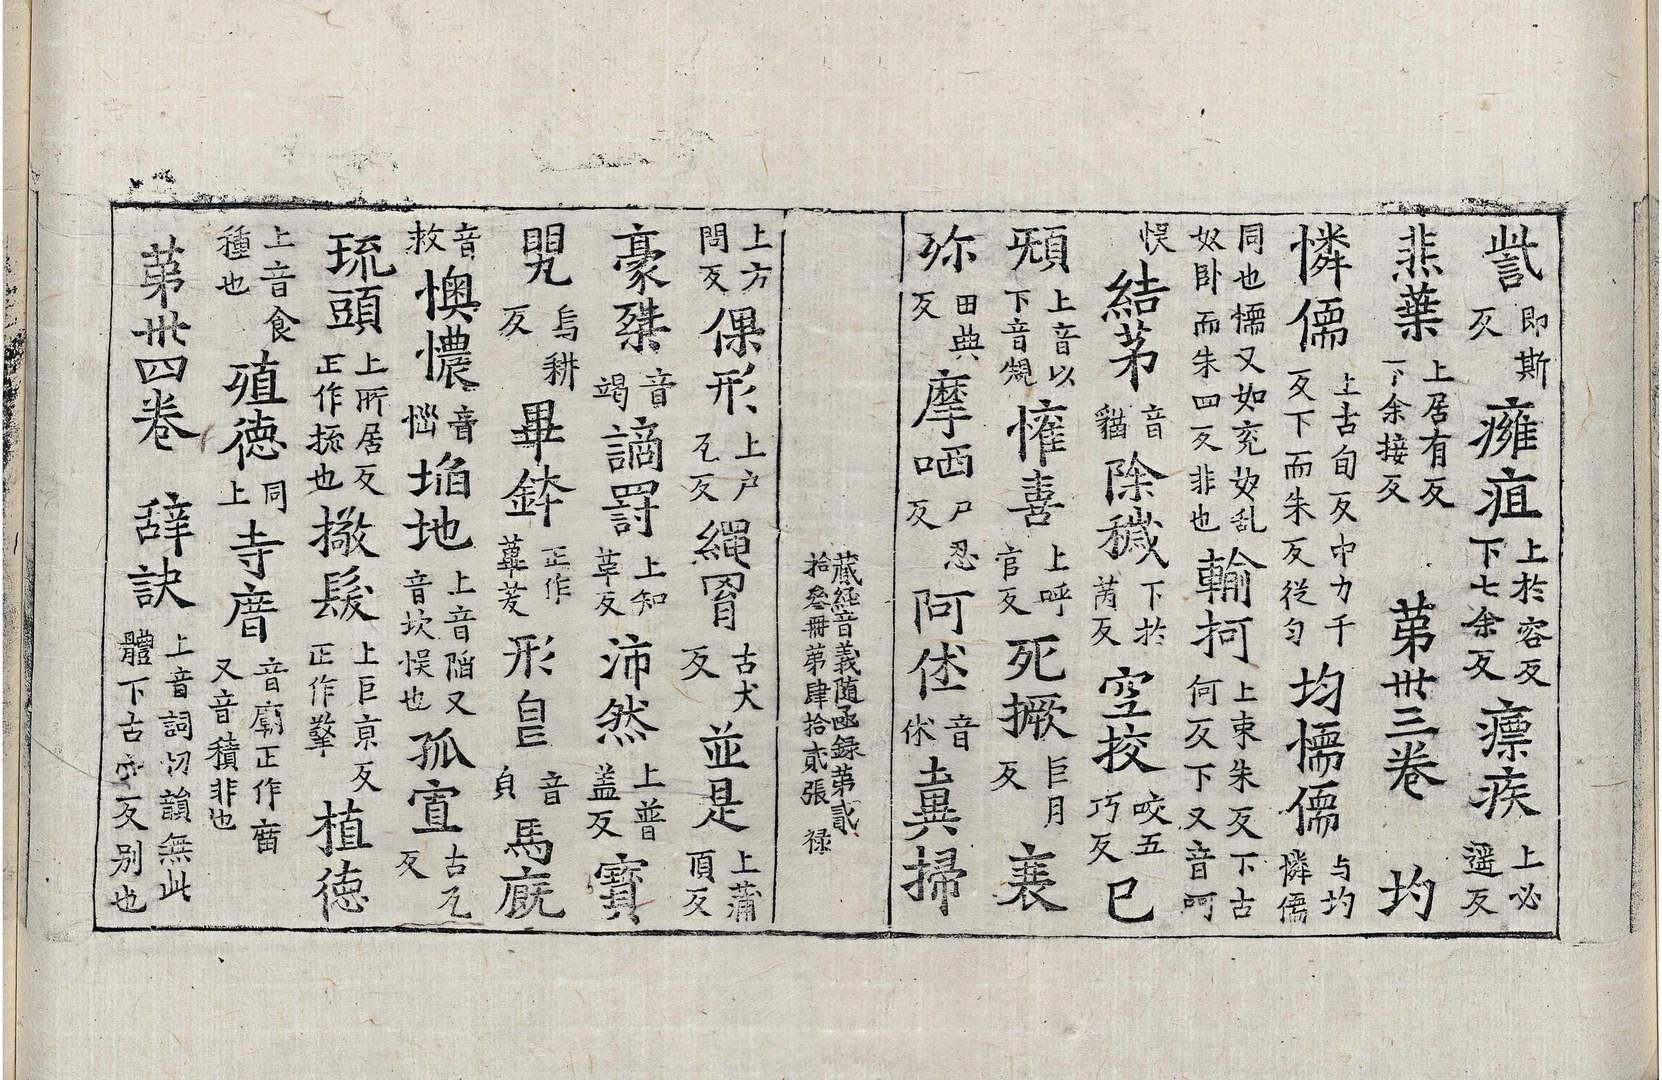 訾即斯反癰疽上於容反下七余反瘭疾上必遥反
韮葉上居有反下余接反 苐丗三卷 圴
憐儒上古旬反下而朱反中力千反下而朱反従匀均懦儒与圴憐儒
同也懦又如兖奴乱奴卧而朱四反非也輸柯上束朱反下古何反下又音呵
悮結茅音貓除穢下於芮反空挍咬五巧反巳
頞上音以下音䂓懽喜上呼官反死撅巨月反襄
殄田典反摩哂尸忍反阿㑣音㳜蕫掃
藏経音義随函録苐貳
拾叄冊苐肆拾貳張 禄
上方問反倮形上户瓦反繩罥古犬反並是上蒲頂反
豪桀音竭謫罸上知革反沛然上普盖反寳
甖烏耕反畢鉢正作蓽茇形皃音皀馬廐
音救懊憹音惱埳地上音陥又音坎悮也孤寡古瓦反
琉頭上所居反正作梳也撽髮上巨京反正作擎植德
上音食種也殖德同上寺庿音廟正作富又音積非也
苐丗四卷 辝訣上音詞切韻無此體下古穴反别也